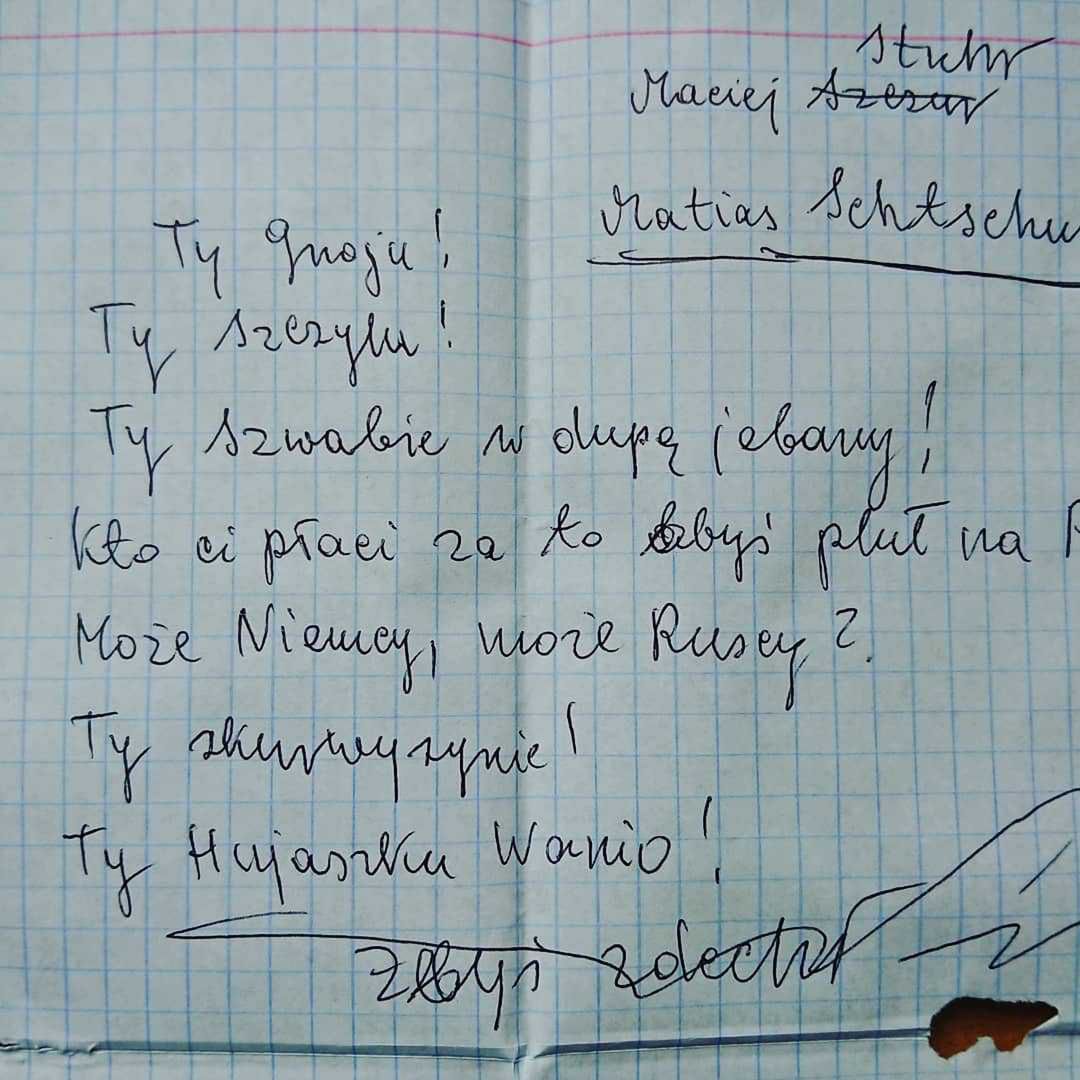 Stuhr
Maciej
Matias Schtschu
Ty gnoju!
Ty szczylu!
Ty szwabie w dupę jebany!
Kto ci płaci za to byś pluł na
Może Niemcy, może Ruscy?
Ty skurwysynie!
Ty Hujaszku Wanio!
Żebyś zdechł